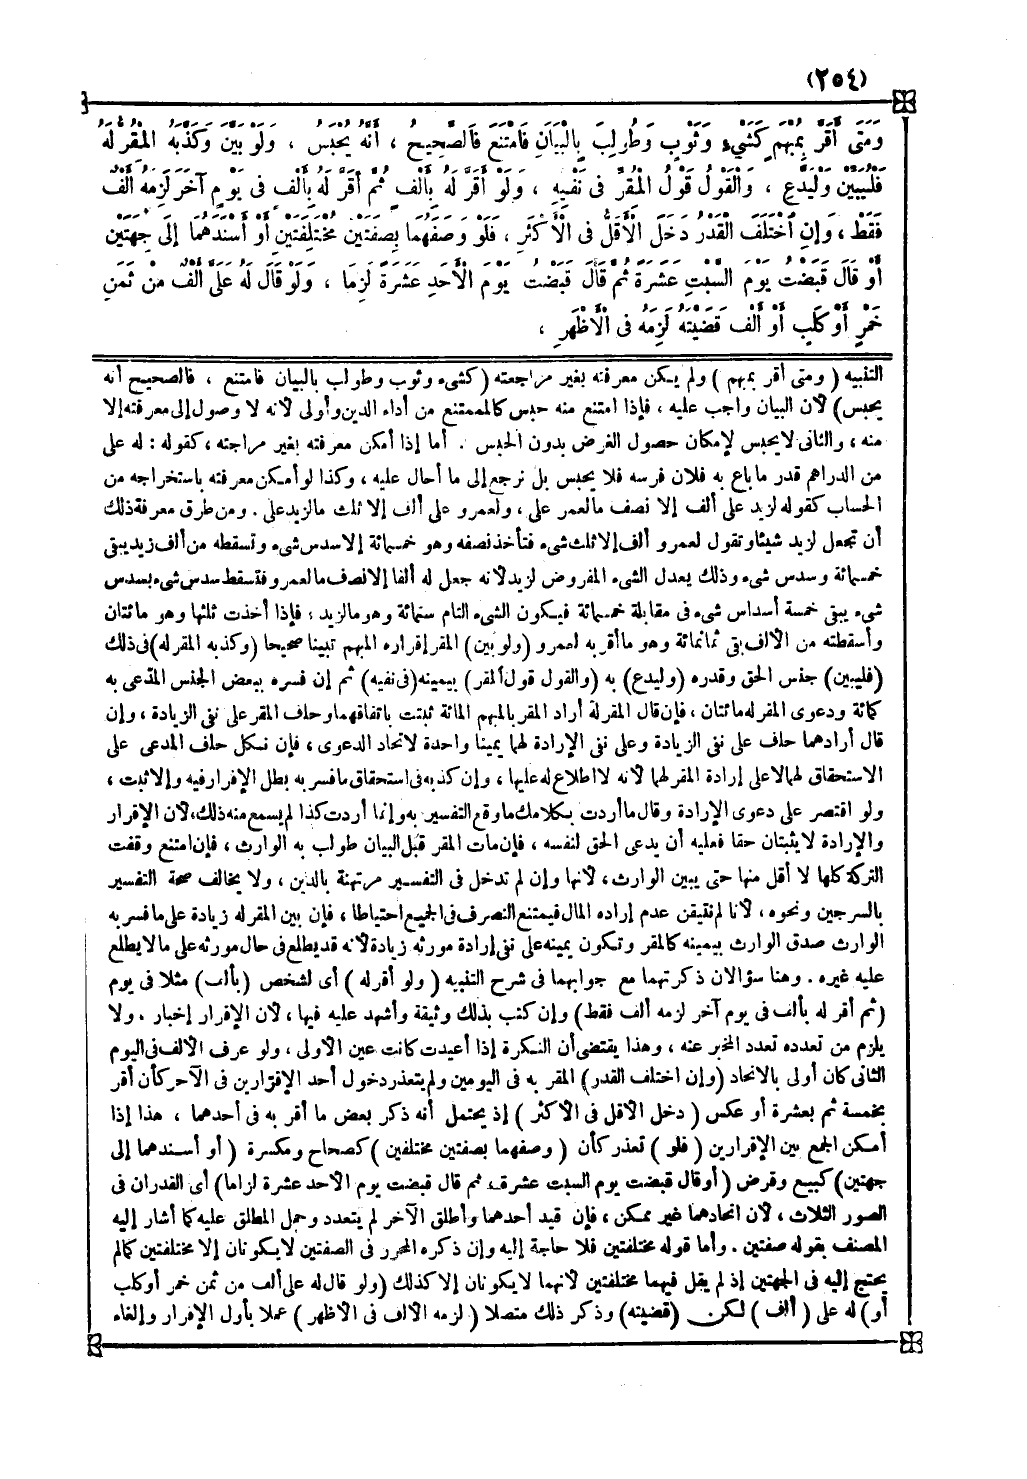 (٢٥٤)
وَمَتَى أَقَرَّ بِمُبْهَمٍ كَشَيْءٍ وَثَوْبٍ وَطُولِبَ بِالْبَيَانِ فَامْتَنَعَ فَالصَّحِيحُ ، أَنَّهُ يُحْبَسُ ، وَلَوْ بَيَّنَ وَكَذَّبَهُ الْمُقَرُّ لَهُ
فَلْيُبَيِّنْ وَلْيَدَّعِ ، وَالْقَوْلُ قَوْلُ الْمُقِرِّ فِي نَفْيِهِ ، وَلَوْ أَقَرَّ لَهُ بِأَلْفٍ ثُمَّ أَقَرَّ لَهُ بِأَلْفٍ فِي يَوْمٍ آخَرَ لَزِمَهُ أَلْفٌ
فَقَطْ ، وَإِنِ اخْتَلَفَ الْقَدْرُ دَخَلَ الْأَقَلُّ فِي الْأَكْثَرِ ، فَلَوْ وَصَفَهُمَا بِصِفَتَيْنِ مُخْتَلِفَتَيْنِ أَوْ أَسْنَدَهُمَا إِلَى جِهَتَيْنِ
أَوْ قَالَ قَبَضْتُ يَوْمَ السَّبْتِ عَشَرَةً ثُمَّ قَالَ قَبَضْتُ يَوْمَ الْأَحَدِ عَشَرَةً لَزِمَا ، وَلَوْ قَالَ لَهُ عَلَيَّ أَلْفٌ مِنْ ثَمَنِ
خَمْرٍ أَوْ كَلْبٍ أَوْ أَلْفٌ قَضَيْتُهُ لَزِمَهُ فِي الْأَظْهَرِ ،
التنبيه (ومتى أقر بمبهم) ولم يمكن معرفته بغير مراجعته (كشىء وثوب وطولب بالبيان فامتنع ، فالصحيح أنه
يحبس) لأن البيان واجب عليه ، فإذا امتنع منه حبس كالممتنع من أداء الدين وأولى لأنه لا وصول إلى معرفته إلا
منه ، والثانى لا يحبس لإمكان حصول الغرض بدون الحبس . أما إذا أمكن معرفته بغير مراجعته ، كقوله : له على
من الدراهم قدر ما باع به فلان فرسه فلا يحبس بل نرجع إلى ما أحال عليه ، وكذا لو أمكن معرفته باستخراجه من
الحساب كقوله لزيد على ألف إلا نصف ما لعمر على ، ولعمرو على ألف إلا ثلث ما لزيد على . ومن طرق معرفة ذلك
أن تجعل لزيد شيئا وتقول لعمرو ألف إلا ثلث شىء فتأخذ نصفه وهو خمسمائة إلا سدس شىء وتسقطه من ألف زيد يبقى
خمسمائة وسدس شىء وذلك يعدل الشىء المفروض لزيد لأنه جعل له ألفا إلا نصف ما لعمرو فتسقط سدس شىء بسدس
شىء يبقى خمسة أسداس شىء فى مقابلة خمسمائة فيكون الشىء التام ستمائة وهو ما لزيد ، فإذا أخذت ثلثها وهو مائتان
وأسقطته من الألف بقى ثمانمائة وهو ما أقر به لعمرو (ولو بين) المقر إقراره المبهم تبيينا صحيحا (وكذبه المقر له) فى ذلك
(فليبين) جنس الحق وقدره (وليدع) به (والقول قول المقر) بيمينه (فى نفيه) ثم إن فسره ببعض الجنس المدعى به
كمائة ودعوى المقر له مائتان ، فإن قال المقر له أراد المقر بالمبهم المائة ثبتت باتفاقهما وحلف المقر على نفى الزيادة ، وإن
قال أرادهما حلف على نفى الزيادة وعلى نفى الإرادة لهما يمينا واحدة لاتحاد الدعوى ، فإن نكل حلف المدعى على
الاستحقاق لهما لا على إرادة المقر لهما لأنه لا اطلاع له عليها ، وإن كذبه فى استحقاق ما فسر به بطل الإقرار فيه وإلا ثبت ،
ولو اقتصر على دعوى الإرادة وقال ما أردت بكلامك ما وقع التفسير به وإنما أردت كذا لم يسمع منه ذلك، لأن الإقرار
والإرادة لا يثبتان حقا فعليه أن يدعى الحق لنفسه ، فإن مات المقر قبل البيان طولب به الوارث ، فإن امتنع وقفت
التركة كلها لا أقل منها حتى يبين الوارث، لأنها وإن لم تدخل فى التفسير مرتهنة بالدين ، ولا يخالف صحة التفسير
بالسرجين ونحوه ، لأنا لم نتيقن عدم إراده المال فيمتنع التصرف فى الجميع احتياطا ، فإن بين المقر له زيادة على ما فسر به
الوارث صدق الوارث بيمينه كالمقر وتكون يمينه على نفى إرادة مورثه زيادة لأنه قد يطلع فى حال مورثه على ما لا يطلع
عليه غيره . وهنا سؤالان ذكرتهما مع جوابهما فى شرح التنبيه (ولو أقر له) أى لشخص (بألف) مثلا فى يوم
(ثم أقر له بألف فى يوم آخر لزمه ألف فقط) وإن كتب بذلك وثيقة وأشهد عليه فيها ، لأن الإقرار إخبار . ولا
يلزم من تعدده تعدد المخبر عنه ، وهذا يقتضى أن النكرة إذا أعيدت كانت عين الأولى ، ولو عرف الألف فى اليوم
الثانى كان أولى بالاتحاد (وإن اختلف القدر) المقر به فى اليومين ولم يتعذر دخول أحد الإقرارين فى الآخر كأن أقر
بخمسة ثم بعشرة أو عكس (دخل الأقل فى الأكثر) إذ يحتمل أنه ذكر بعض ما أقر به فى أحدهما ، هذا إذا
أمكن الجمع بين الإقرارين (فلو) تعذر كأن (وصفهما بصفتين مختلفتين) كصحاح ومكسرة (أو أسندهما إلى
جهتين) كبيع وقرض (أو قال قبضت يوم السبت عشرة، ثم قال قبضت يوم الأحد عشرة لزاما) أى القدران فى
الصور الثلاث ، لأن اتحادهما غير ممكن ، فإن قيد أحدهما وأطلق الآخر لم يتعدد وحمل المطلق عليه كما أشار إليه
المصنف بقوله صفتين . وأما قوله مختلفتين فلا حاجة إليه وإن ذكره المحرر فى الصفتين لا يكونان إلا مختلفتين كما لم
يحتج إليه فى الجهتين إذ لم يقل فيهما مختلفتين لأنهما لا يكونان إلا كذلك (ولو قال له على ألف من ثمن خمر أو كلب
أو) له على (ألف) لكن (قضيته) وذكر ذلك متصلا (لزمه الألف فى الأظهر) عملا بأول الإقرار وإلغاء